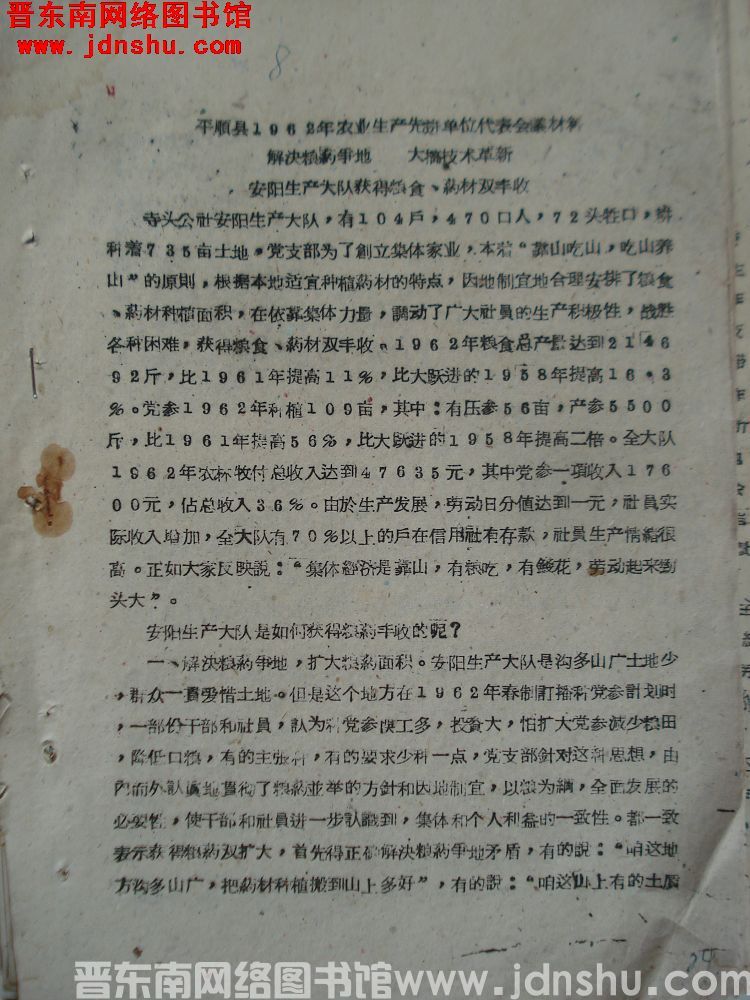 晋东南网络图书馆
www.jdnshu.com
8.
平順县1962年农业生产先进单位代表会議材料
解決粮葯爭地 大搞技术革新
安阳生产大队获得粮食、葯材双丰收
寺头公社安阳生产大队,有104戶,470口人,72头牲口,耕
种着735亩土地。党支部为了創立集体家业,本着“靠山吃山,吃山养
山”的原則,根据本地适宜种植葯材的特点,因地制宜地合理安排了粮食
、葯材种植面积,在依靠集体力量,調动了广大社員的生产积极性,战胜
各种困难,获得粮食、葯材双丰收。1962年粮食总产量达到2146
92斤,比1961年提高11%,比大跃进的1958年提高16·3
%。党参1962年种植109亩,其中:有压参56亩,产参5500
斤,比1961年提高56%,比大跃进的1958年提高二倍。全大队
1962年农林牧付总收入达到47635元,其中党参一項收入176
00元,佔总收入36%。由於生产发展,劳动日分值达到一元,社員实
际收入增加,全大队有70%以上的戶在信用社有存款,社員生产情緒很
高。正如大家反映說:“集体經济是靠山,有粮吃,有錢花,劳动起来劲
头大”。
安阳生产大队是如何获得粮葯丰收的呢?
一、解決粮葯爭地,扩大粮葯面积。安阳生产大队是沟多山广土地少
,群众一貫爱惜土地。但是这个地方在1962年春制訂播种党参計划时
,一部份干部和社員,认为种党参費工多,投資大,怕扩大党参减少粮田
,降低口粮,有的主張种,有的要求少种一点,党支部針对这种思想,由
內而外認眞地貫彻了粮葯並举的方針和因地制宜,以粮为綱,全面发展的
必要性,使干部和社員进一步認識到,集体和个人利益的一致性。都一致
表示获得粮葯双扩大,首先得正确解決粮葯爭地矛盾,有的說:“咱这地
方沟多山广,把葯材种植搬到山上多好”,有的說:“咱这山上有的土质
24
晋东南网络图书馆www.jdnshu.com